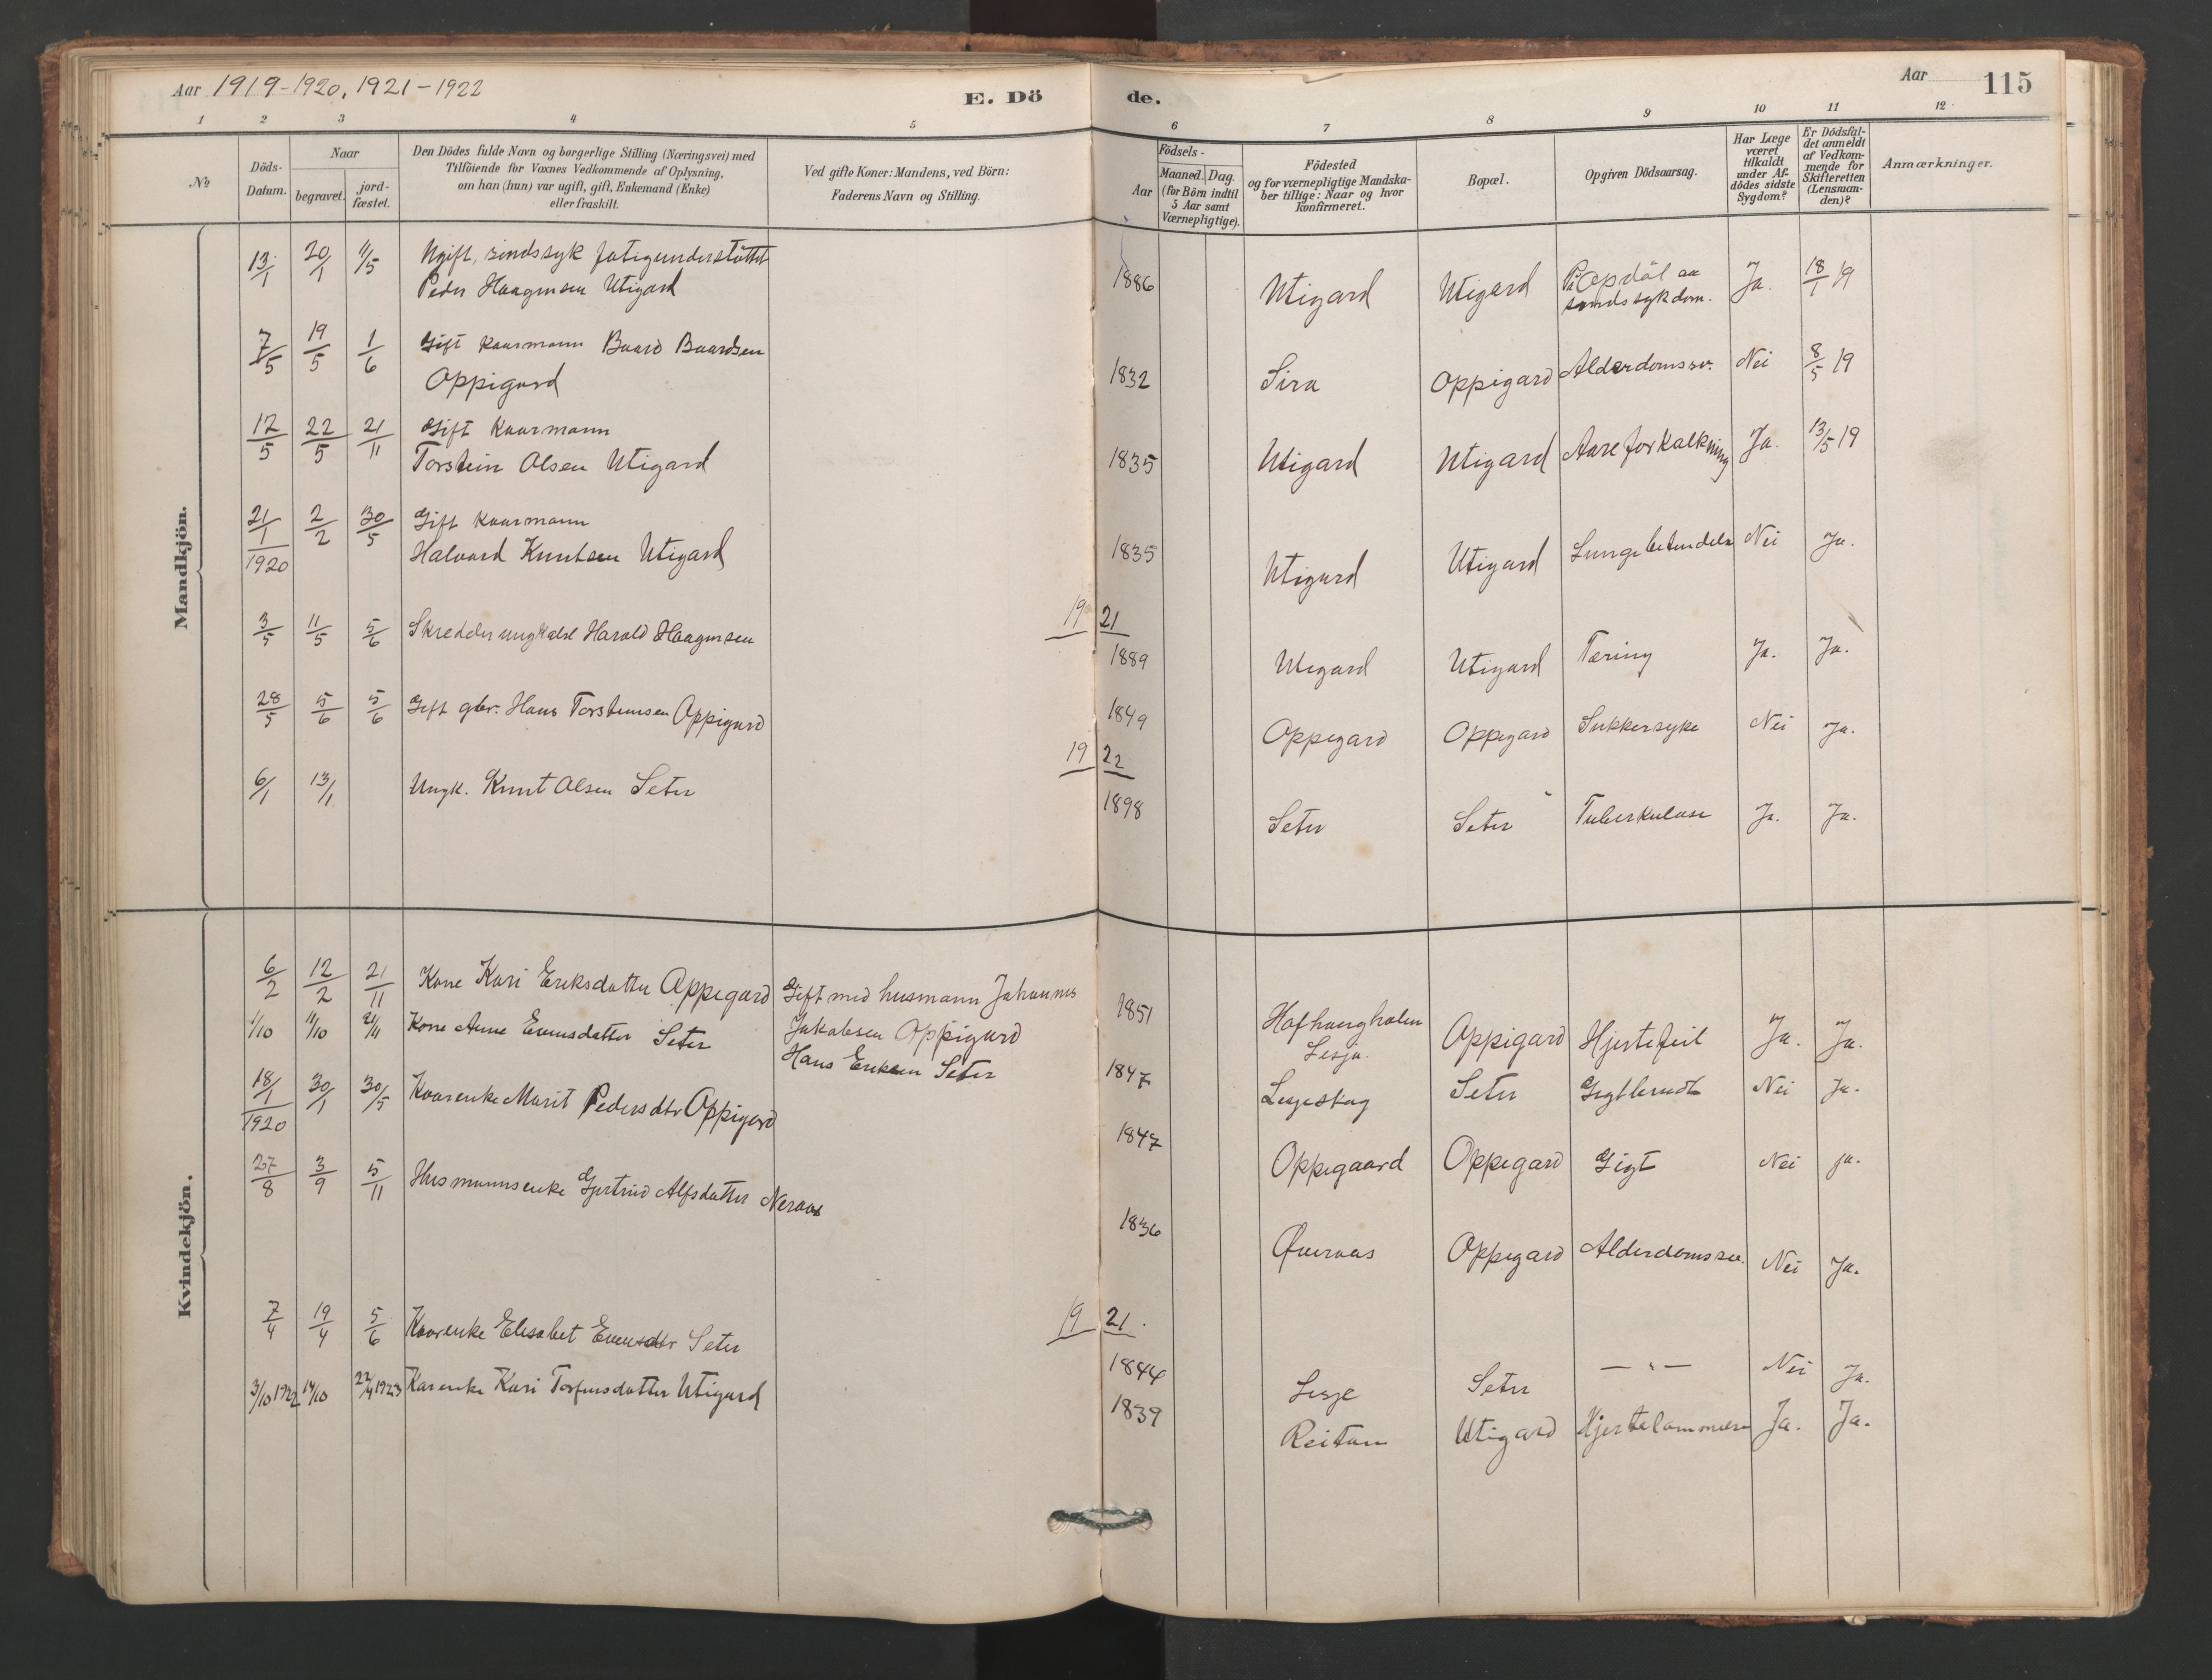 Aar 1919-1920, 1921-1922
E. Dö de.
Aar 115
1 2 3 4 5 6 7 8 9 10 11 12
No
Döds-Datum.
Naar
begravet.
jord-fæstet.
Den Dödes fulde Navn og borgerlige Stilling (Næringsvei) med
Tilföiende for Voxnes Vedkommende af Oplysning,
om han (hun) var ugift, gift, Enkemand (Enke)
eller fraskilt.
Ved gifte Koner: Mandens, ved Börn:
Faderens Navn og Stilling.
Födsels-
Aar
Maaned. Dag.
(for Börn indtil
5 Aar samt
Værnepligtige).
Födested
og for værnepligtige Mandska-
ber tillige: Naar og hvor
konfirmeret.
Bopæl.
Opgiven Dödsaarsag.
Har Læge
været
tilkaldt
under Af-
dödes sidste
Sygdom?
Er Dödsfal-
det anmeldt
af Vedkom-
mende for
Skifteretten
(Lensman-
den)?
Anmærkninger.
Mandkjön.
13/1 20/1 11/5 Ugift, sindssyk fatigunderstöttet
Peder Haagensen Utigard 1886 Utigard Utigard På Opdöl aa
sindssykdom. Ja. 18/1 19
7/5 19/5 1/6 Gift kaarmann Baard Baardsen
Oppigard 1832 Lira Oppigard Alderdomssv. Nei 8/5 19
12/5 22/5 21/11 Gift Kaarmann
Torstein Olsen Utigard 1835 Utigard Utigard Aareforkalkning Ja. 13/5 19
21/1 1920 2/2 30/5 Gift kaarmann
Halvard Knutsen Utigard 1835 Utigard Utigard Lungebetendelse Nei Ja.
1921
3/5 11/5 5/6 Skredder ungkarl Harald Haagensen 1889 Utigard Utigard Tæring Ja. Ja.
28/5 5/6 5/6 Gift gbr. Hans Torsteinsen Oppigard 1849 Oppegard Oppegard Sukkersyke Nei Ja.
1922
6/1 13/1 Ungk. Knut Olsen Seter 1898 Seter Seter Tuberkulose Ja. Ja.
Kvindekjön.
6/2 12/2 21/11 Kone Kari Eriksdatter Oppegard Gift med husmann Johannes
Jakobsen Oppigard 1851 Lesja. Oppigard Hjertefeil Ja. Ja.
1/10 11/10 21/11 Kone Anne Evensdatter Seter Hans Eriksen Seter 1847 Lesjeskog Seter Nei Ja.
18/1 1920 30/1 30/5 Kaarenke Marit Pedersdtr Oppigard 1847 Oppegaard Oppegard Gigt Nei ja.
27/8 3/9 5/11 Husmannsenke Gjertrud Alfsdatter Neraas 1836 Överaas Oppegard Alderdomssv. Nei Ja.
1921.
7/4 19/4 5/6 Kaarenke Elisabet Evensdtr Seter 1844 Lesje Seter — " — Nei Ja.
3/10 1922 14/10 22/4 1923 Karenke Kari Torfinsdatter Utigard 1839 Reitan Utigard Hjertelammelse Ja. Ja.